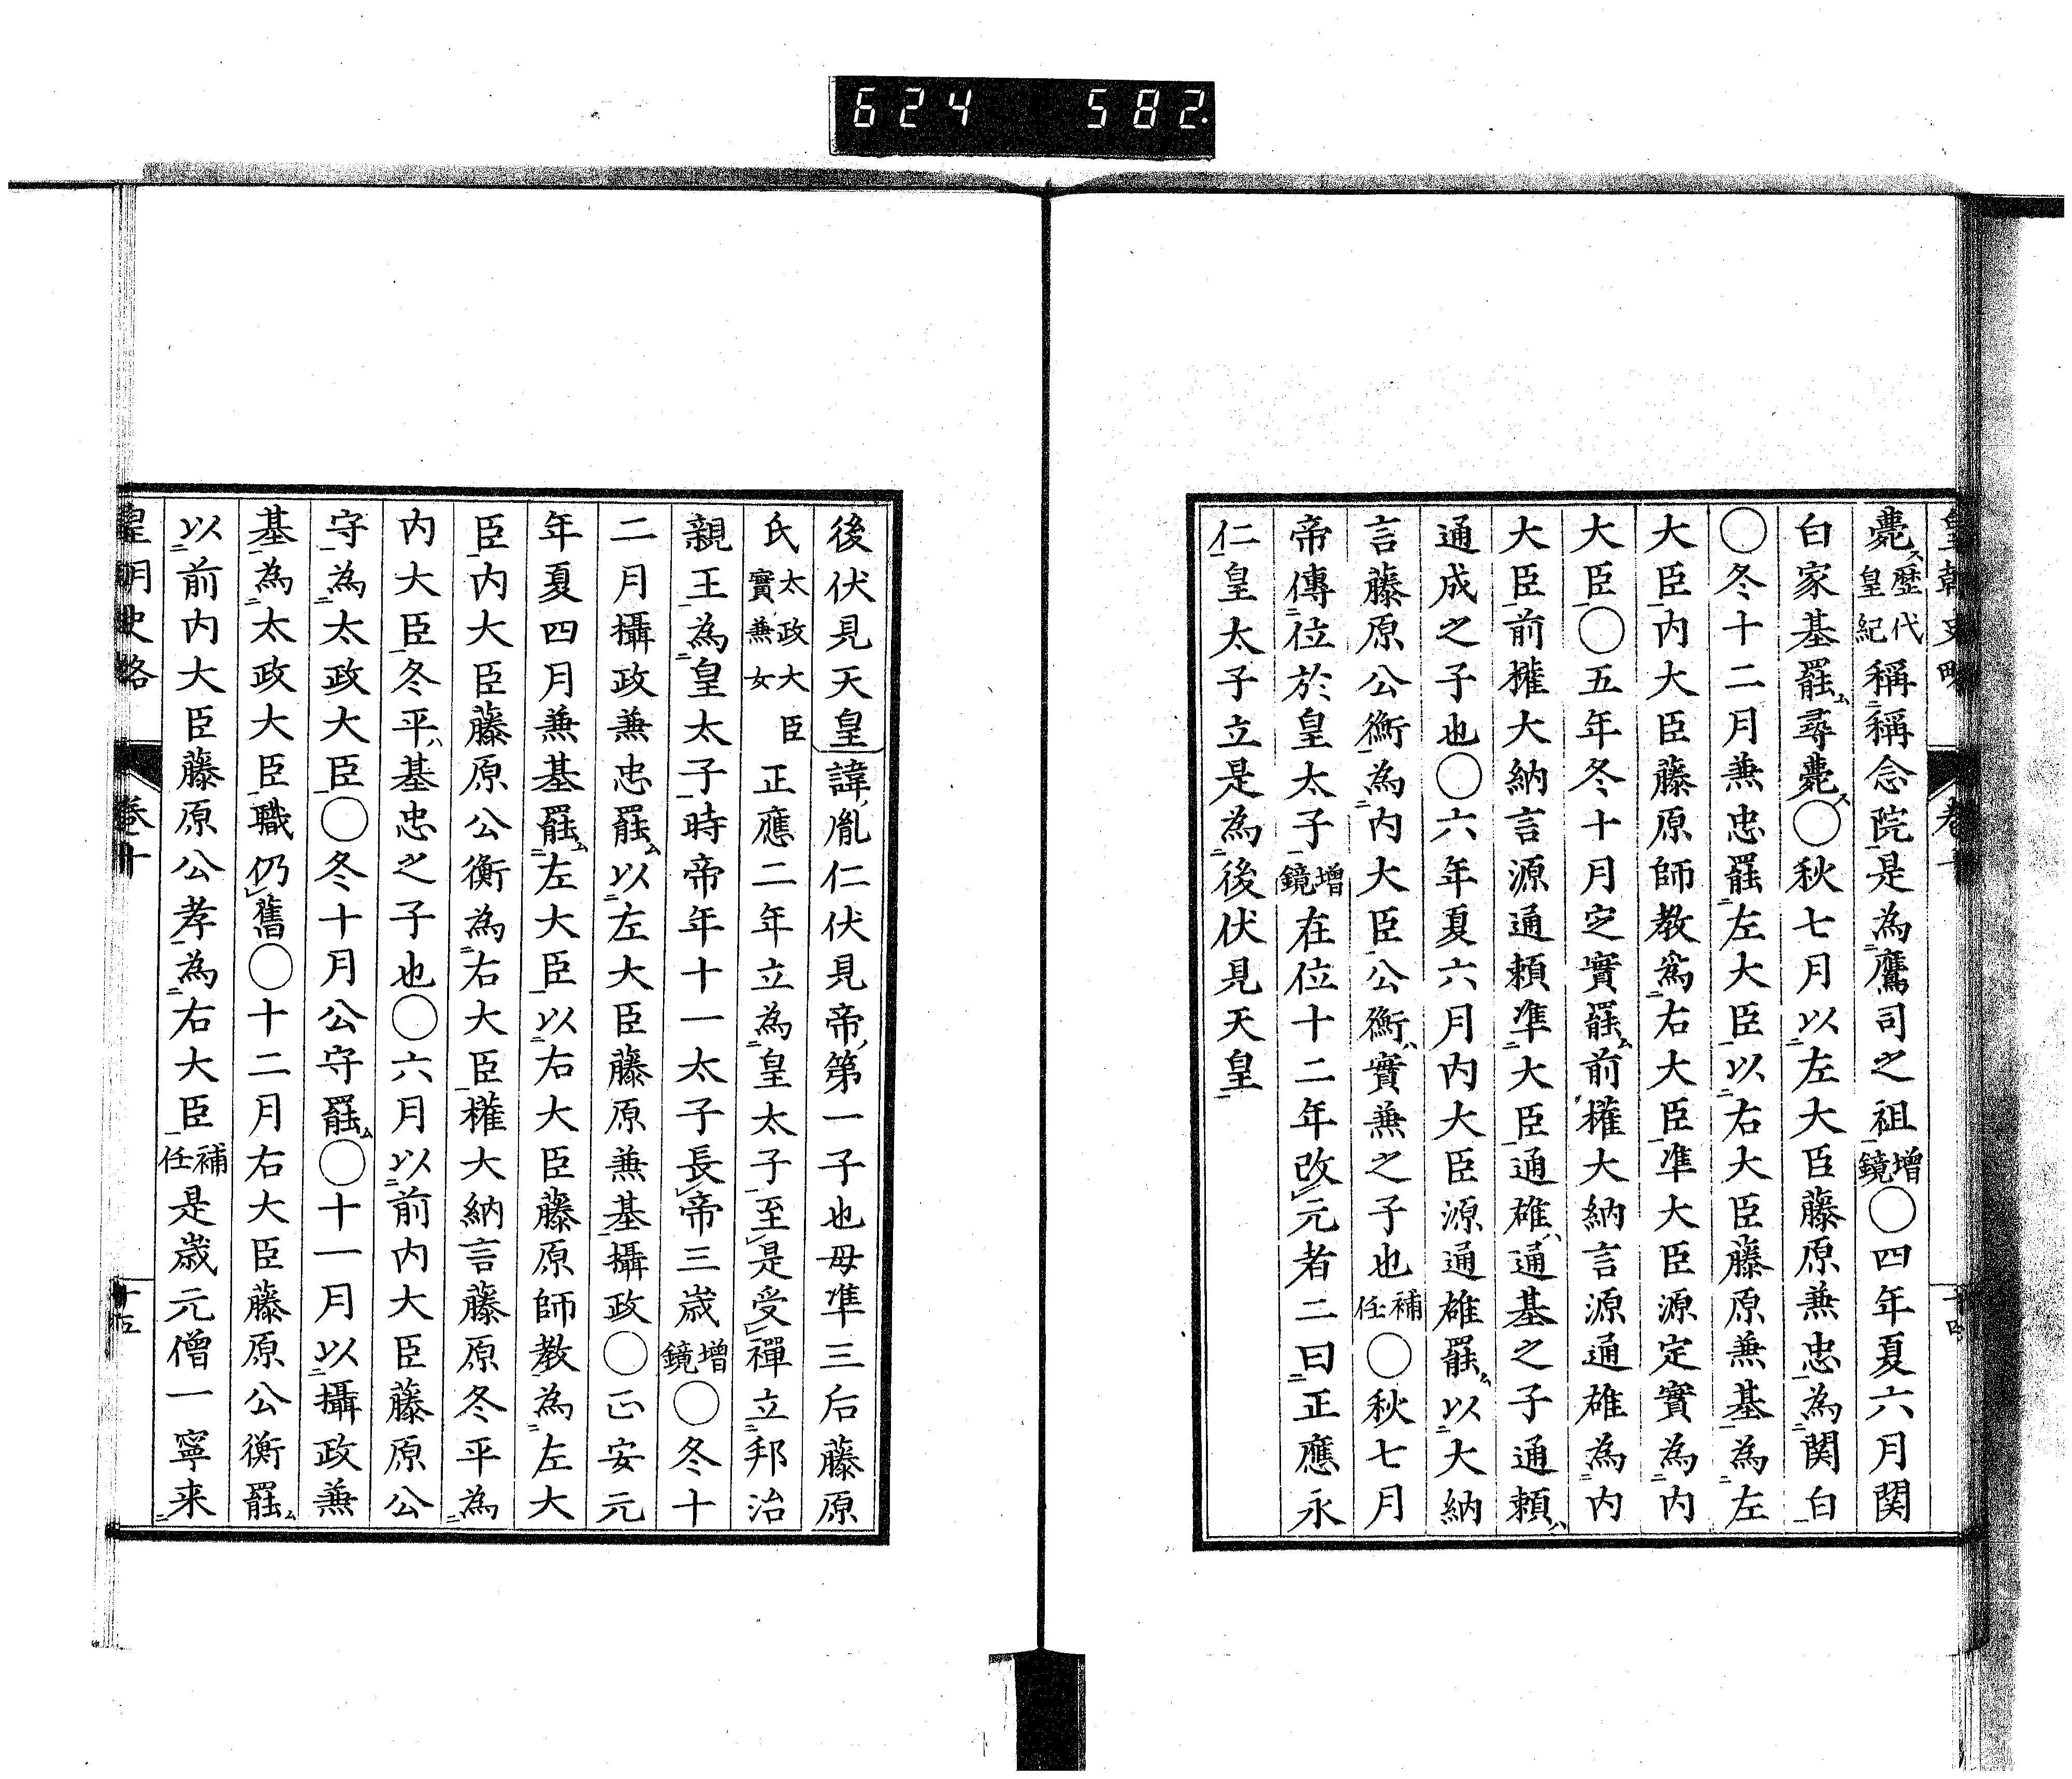 624 582.
皇朝史略 卷十 十四
薨歷代皇紀稱稱念院是為鷹司之祖增鏡〇四年夏六月関
白家基罷尋薨〇秋七月以左大臣藤原兼忠為関白
〇冬十二月兼忠罷左大臣以右大臣藤原兼基為左
大臣內大臣藤原師教為右大臣準大臣源定實為內
大臣〇五年冬十月定實罷前權大納言源通雄為內
大臣前權大納言源通賴準大臣通雄通基之子通賴
通成之子也〇六年夏六月內大臣源通雄罷以大納
言藤原公衡為內大臣公衡實兼之子也補任〇秋七月
帝傳位於皇太子增鏡在位十二年改元者二曰正應永
仁皇太子立是為後伏見天皇
後伏見天皇諱胤仁伏見帝第一子也母準三后藤原
氏太政大臣實兼女正應二年立為皇太子至是受禪立邦治
親王為皇太子時帝年十一太子長帝三歲增鏡〇冬十
二月攝政兼忠罷以左大臣藤原兼基攝政〇正安元
年夏四月兼基罷左大臣以右大臣藤原師教為左大
臣內大臣藤原公衡為右大臣權大納言藤原冬平為
內大臣冬平基忠之子也〇六月以前內大臣藤原公
守為太政大臣〇冬十月公守罷〇十一月以攝政兼
基為太政大臣職仍舊〇十二月右大臣藤原公衡罷
以前內大臣藤原公孝為右大臣補任是歲元僧一寧来
皇朝史略 卷十 十五